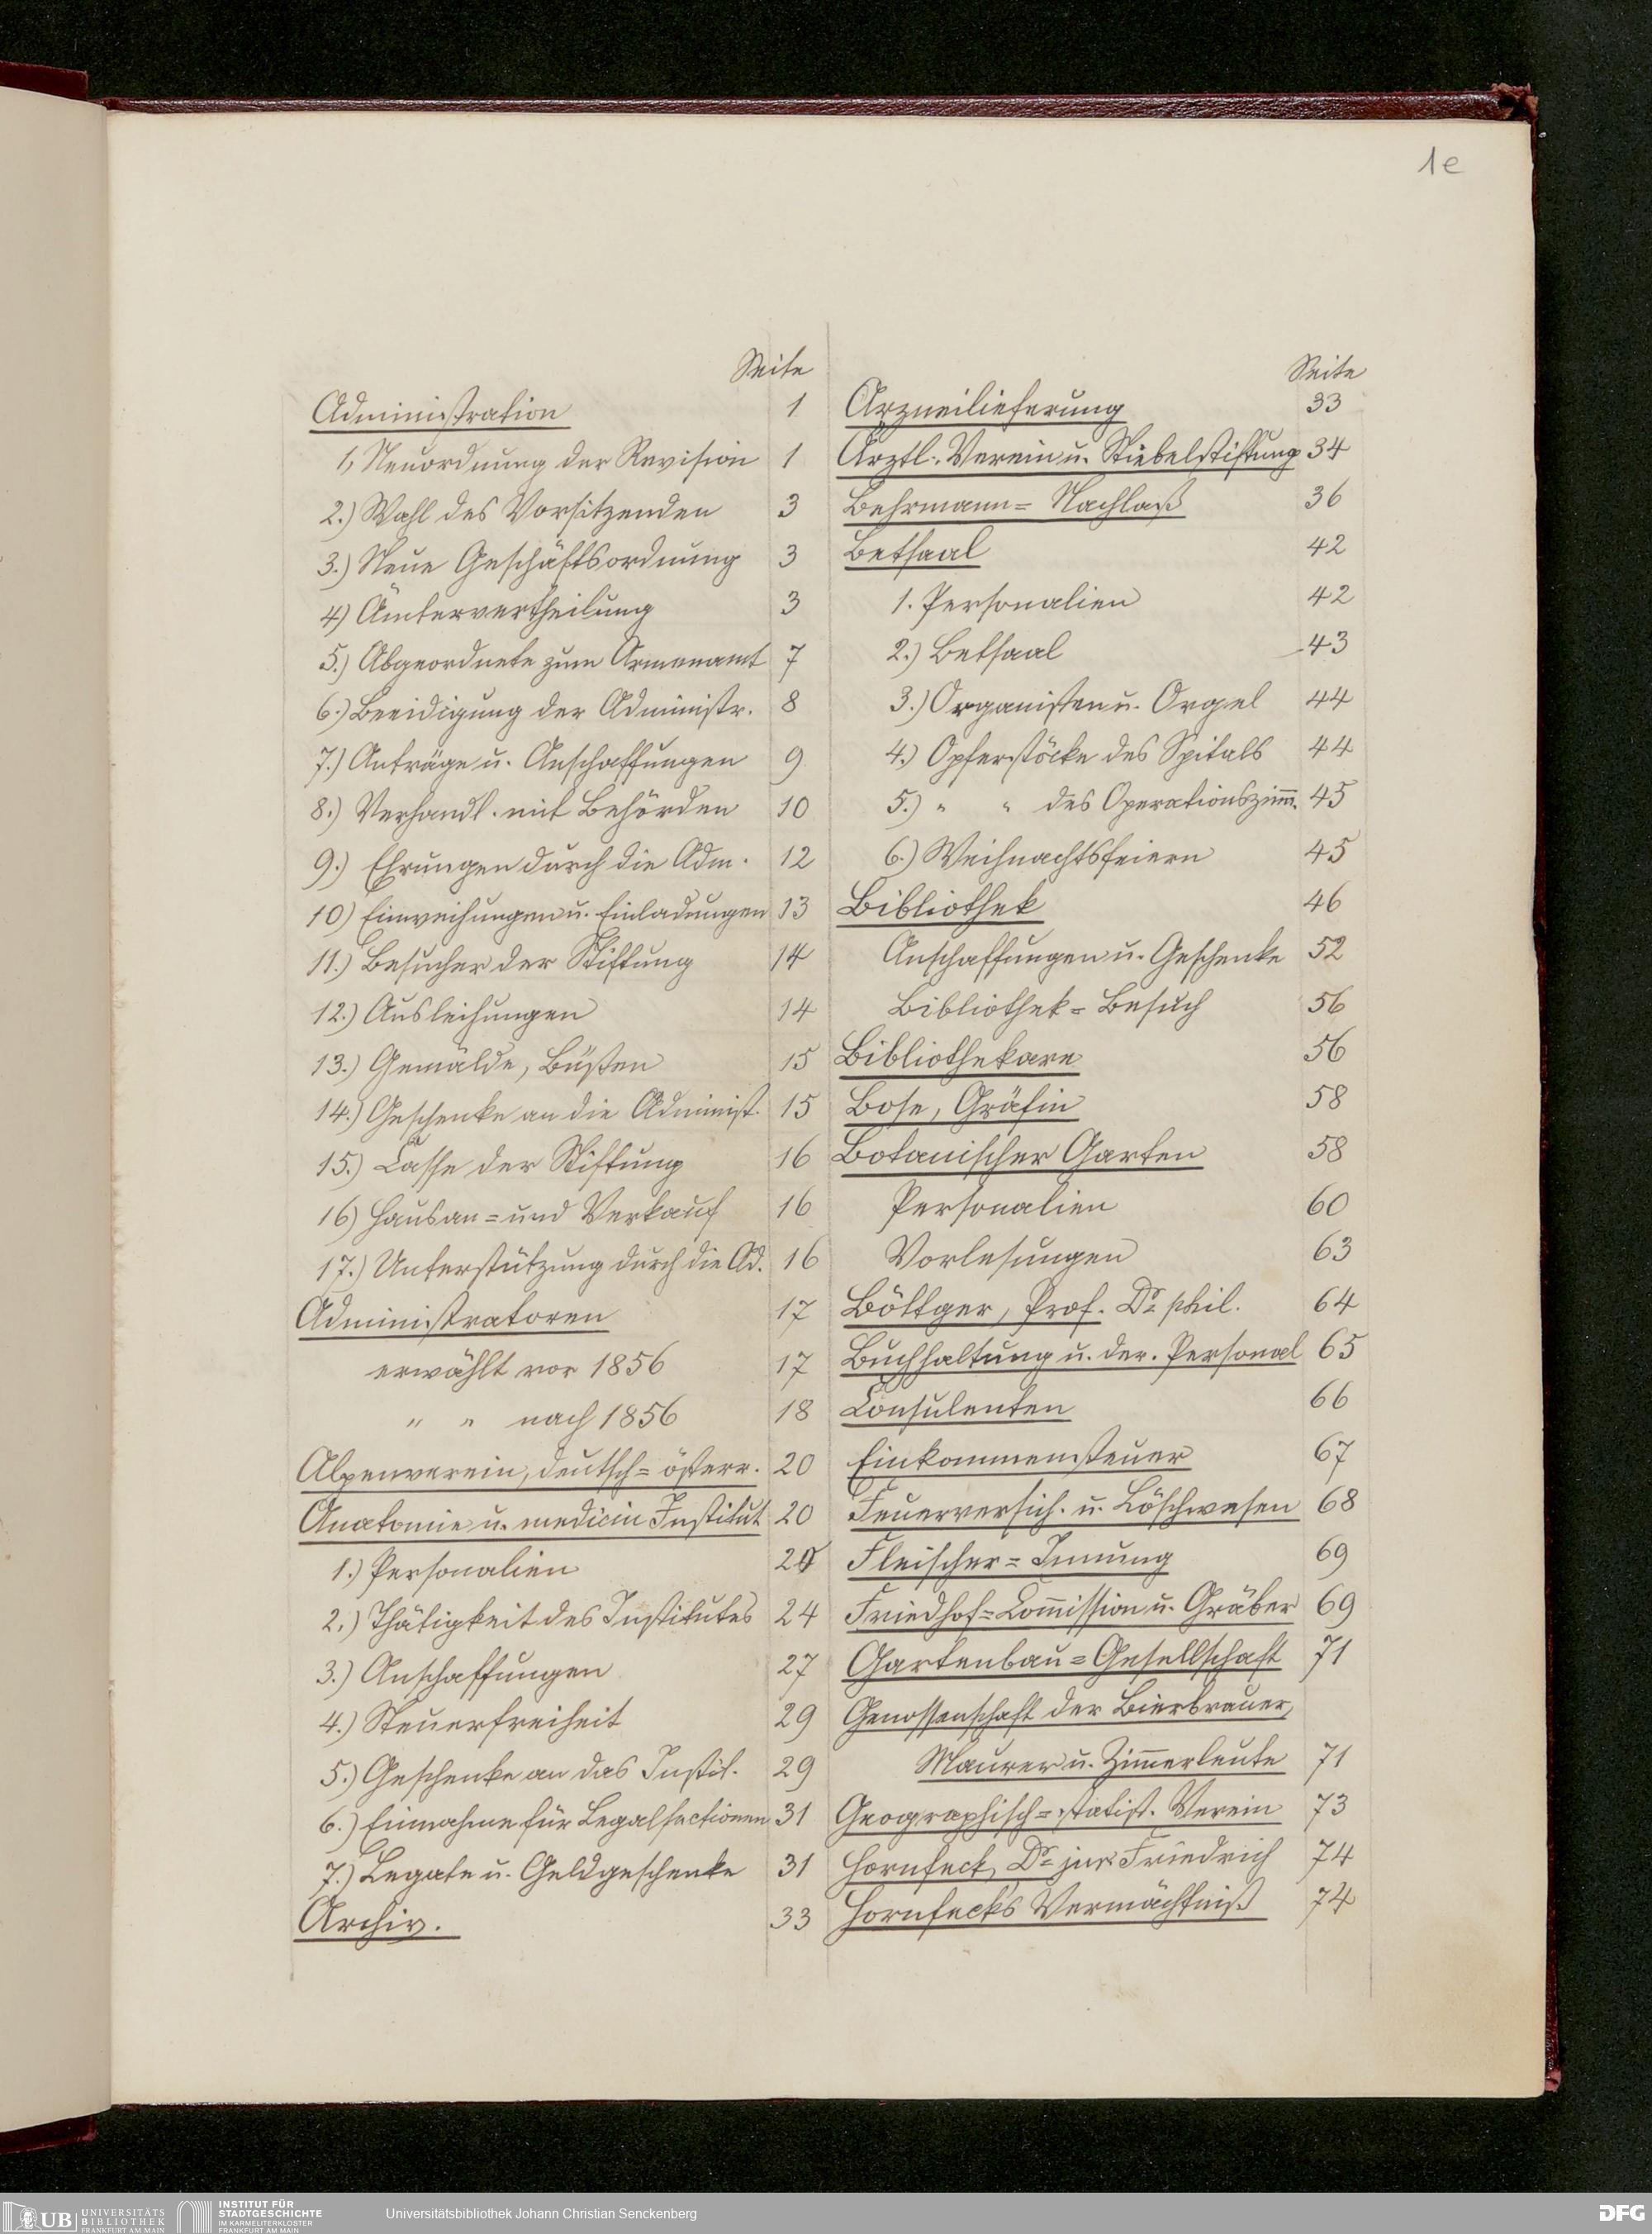 1e
Seite
Administration 1
1, Neuordnung der Revision 1
2.) Wahl des Vorsitzenden 3
3.) Neue Geschäftsordnung 3
4) Ämtervertheilung 3
5.) Abgeordnete zum Armenamt 7
6.) Beeidigung der Administr. 8
7.) Anträge u. Anschaffungen 9
8.) Verhandl. mit Behörden 10
9.) Ehrungen durch die Adm. 12
10) Einweihungen u. Einladungen 13
11.) Besucher der Stiftung 14
12.) Ausleihungen 14
13.) Gemälde, Büsten 15
14.) Geschenke an die Administ. 15
15.) Casse der Stiftung 16
16) Hausan= und Verkauf 16
17.) Unterstützung durch die Ad. 16
Administratoren 17
erwählt vor 1856 17
" " nach 1856 18
Alpenverein, deutsch= österr. 20
Anatomie u. medicin Institut 20
1.) Personalien 20
2.) Thätigkeit des Institutes 24
3.) Anschaffungen 27
4.) Steuerfreiheit 29
5.) Geschenke an das Instit. 29
6.) Einnahme für Legalsectionen 31
7.) Legate u. Geldgeschenke 31
Archiv. 33
Seite
Arzneilieferung 33
Ärztl. Verein u. Stiebelstiftung 34
Behrmann= Nachlaß 36
Betsaal 42
1. Personalien 42
2.) Betsaal 43
3.) Organisten u. Orgel 44
4.) Opferstöcke des Spitals 44
5.) " " des Operationszim̅. 45
6.) Weihnachtsfeiern 45
Bibliothek 46
Anschaffungen u. Geschenke 52
Bibliothek= Besuch 56
Bibliothekare 56
Bose, Gräfin 58
Botanischer Garten 58
Personalien 60
Vorlesungen 63
Böttger, Prof. Dr. phil. 64
Buchhaltung u. der. Personal 65
Consulenten 66
Einkommensteuer 67
Feuerversich. u. Löschwesen 68
Fleischer= Innung 69
Friedhof= Com̅ission u. Gräber 69
Gartenbau= Gesellschaft 71
Genossenschaft der Bierbrauer,
Maurer u. Zim̅erleute 71
Geographisch= statist. Verein 73
Hornfeck, Dr. jur. Friedrich 74
Hornfeck's Vermächtniß 74
UB UNIVERSITÄTS
BIBLIOTHEK
FRANKFURT AM MAIN
INSTITUT FÜR
STADTGESCHICHTE
IM KARMELITERKLOSTER
FRANKFURT AM MAIN
Universitätsbibliothek Johann Christian Senckenberg
DFG